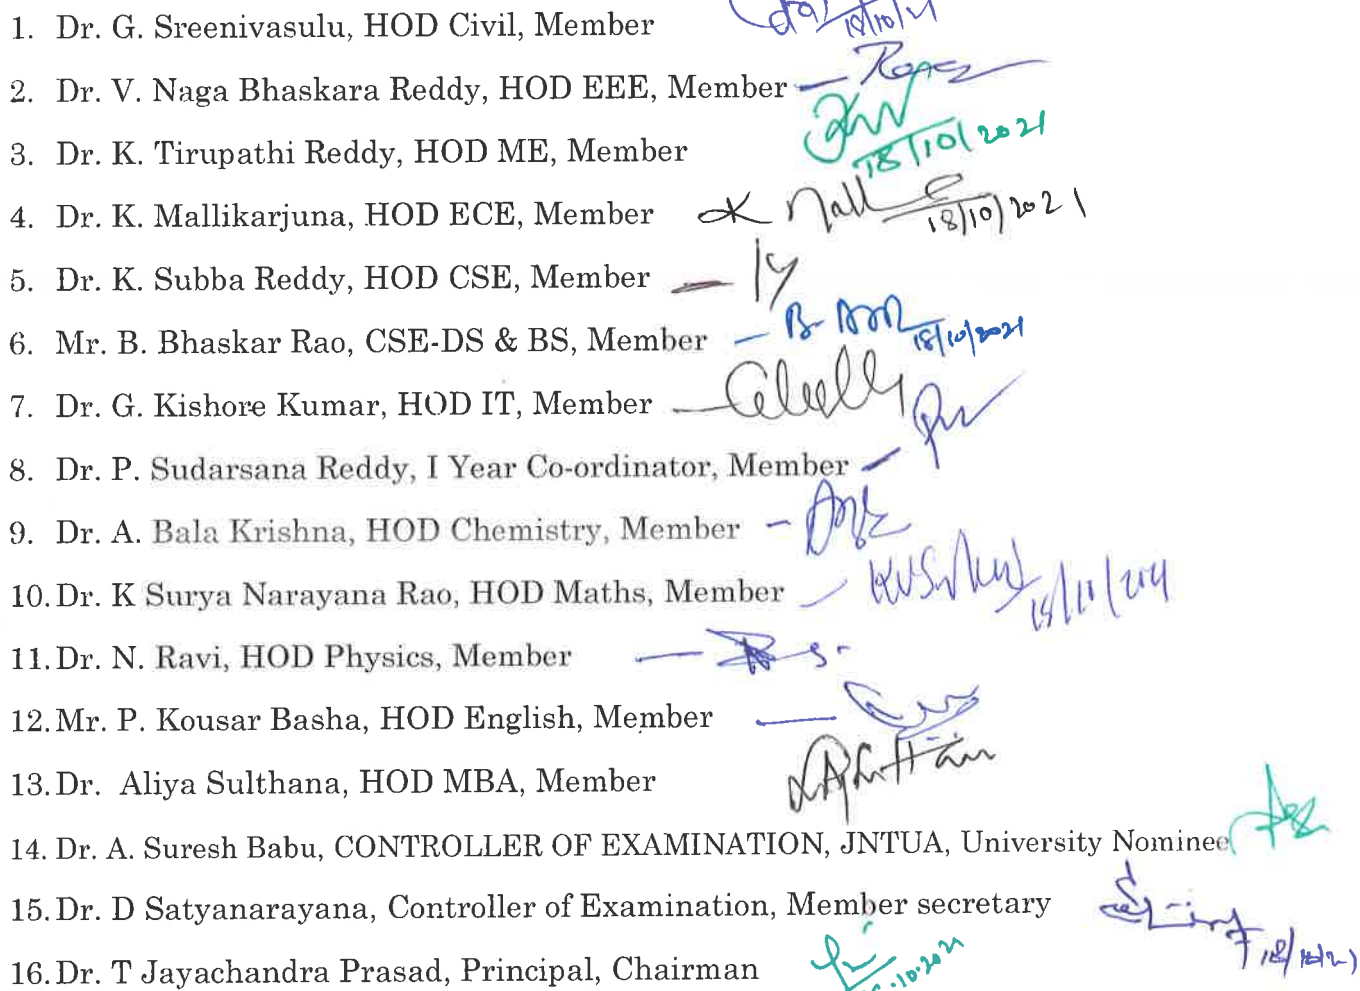 1. Dr. G. Sreenivasulu, HOD Civil, Member 18/10/21
2. Dr. V. Naga Bhaskara Reddy, HOD EEE, Member
3. Dr. K. Tirupathi Reddy, HOD ME, Member 18/10/2021
4. Dr. K. Mallikarjuna, HOD ECE, Member 18/10/2021
5. Dr. K. Subba Reddy, HOD CSE, Member
6. Mr. B. Bhaskar Rao, CSE-DS & BS, Member 18/10/2021
7. Dr. G. Kishore Kumar, HOD IT, Member
8. Dr. P. Sudarsana Reddy, I Year Co-ordinator, Member
9. Dr. A. Bala Krishna, HOD Chemistry, Member
10. Dr. K Surya Narayana Rao, HOD Maths, Member
11. Dr. N. Ravi, HOD Physics, Member
12. Mr. P. Kousar Basha, HOD English, Member
13. Dr. Aliya Sulthana, HOD MBA, Member
14. Dr. A. Suresh Babu, CONTROLLER OF EXAMINATION, JNTUA, University Nominee
15. Dr. D Satyanarayana, Controller of Examination, Member secretary
16. Dr. T Jayachandra Prasad, Principal, Chairman